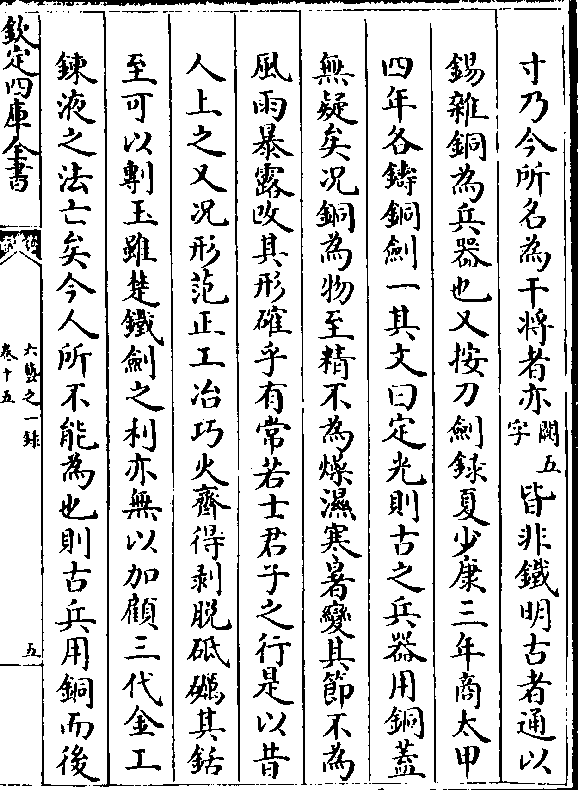 寸乃今所名為干將者亦闕五字皆非鐵明古者通以
錫雜銅為兵器也又按刀劍録夏少康三年商太甲
四年各鑄銅劍一其文曰定光則古之兵器用銅蓋
無疑矣况銅為物至精不為燥濕寒暑變其節不為
風雨暴露改其形確乎有常若士君子之行是以昔
人上之又况形范正工冶巧火齊得剥脱砥礪其銛
至可以剸玉雖楚鐵劍之利亦無以加顧三代金工
鍊液之法亡矣今人所不能為也則古兵用銅而後
欽定四庫全書
六藝之一録
卷十五
五